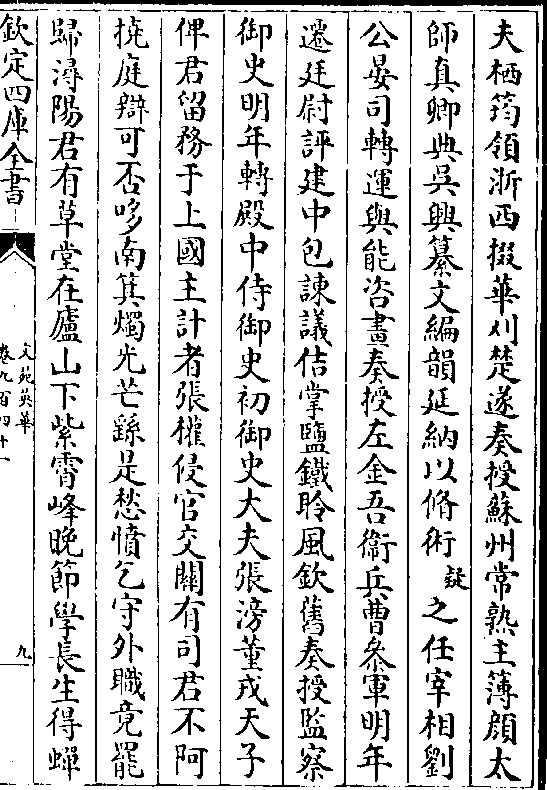 夫栖筠領浙西掇華刈楚遂奏授蘇州常熟主簿顔太
師真卿典吳興纂文編韻延納以脩術疑之任宰相劉
公晏司轉運與能咨畫奏授左金吾衞兵曹叅軍明年
遷廷尉評建中包諌議佶掌鹽鐵聆風欽舊奏授監察
御史明年轉殿中侍御史初御史大夫張滂董戎天子
俾君留務于上國主計者張權侵官交關有司君不阿
撓庭辯可否哆南箕燭光芒繇是愁憤乞守外職竟罷
歸潯陽君有草堂在廬山下紫霄峰晩節學長生得蟬
欽定四庫全書
文苑英華
卷九百四十一
九